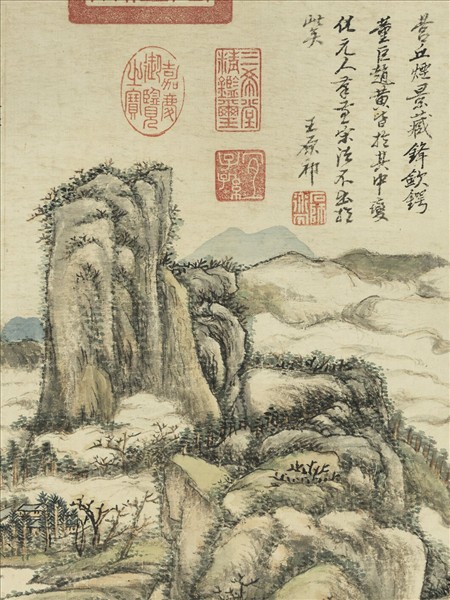 營丘煙景藏鋒斂鍔
董巨趙黃皆於其中變
化元人法不出於
此矣
王原祁
三希堂
精鑑璽
宜
子孫
嘉慶
御覽
之寶